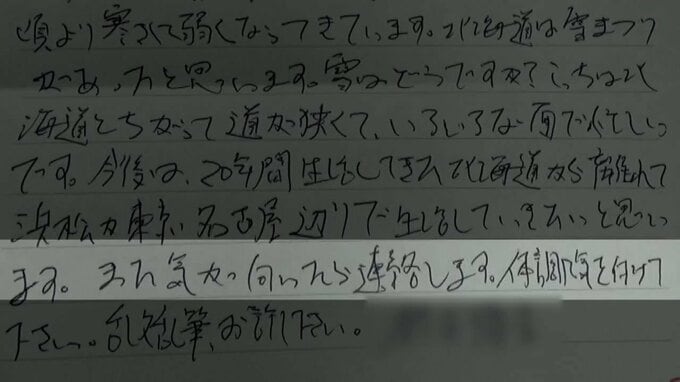 頃より寒さで弱くなってきています。北海道は雪まつり
があったと思います。雪はどうですか?こっちは北
海道とちがって道が狭くて、いろいろな面で忙しい
です。今後は、20年間生活してきた北海道から離れて
浜松か東京、名古屋辺りで生活していきたいと思い
ます。また気が向いたら連絡します。体調気を付けて
下さい。乱文乱筆、お許し下さい。